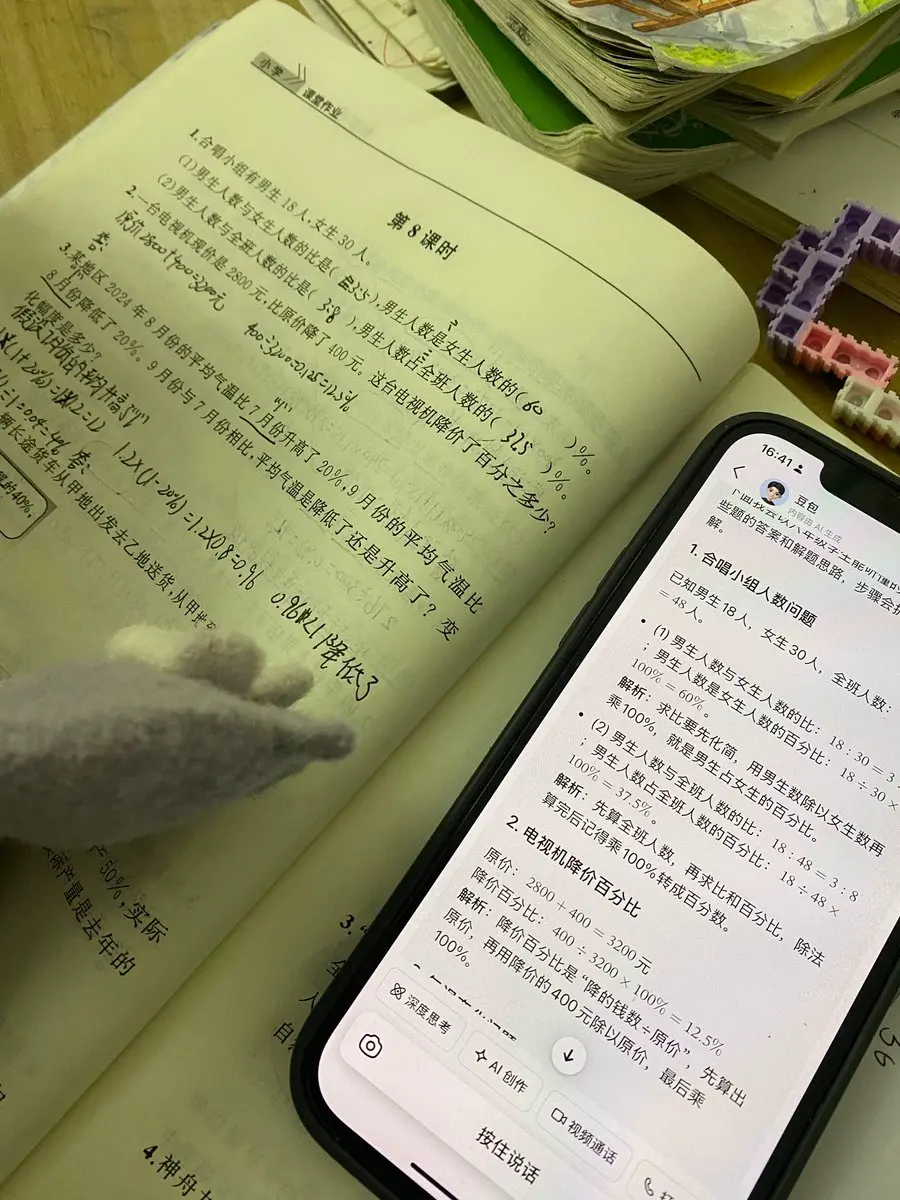 小学
课堂作业
第 8 课时
1.合唱小组有男生 18 人,女生 30 人。
(1)男生人数与女生人数的比是( 3:5 ),男生人数是女生人数的( 60 )%。
(2)男生人数与全班人数的比是( 3:8 ),男生人数占全班人数的( )%。
2.一台电视机现价是 2800 元,比原价降了 400 元。这台电视机降价了百分之多少?
原价2800+400=3200元
400÷3200=0.125=12.5%
答
3.某地区 2024 年 8 月份的平均气温比 7 月份升高了 20%,9 月份的平均气温比
8 月份降低了 20%。9 月份与 7 月份相比,平均气温是降低了还是升高了? 变
化幅度是多少?
1.2×(1-20%)=1.2×0.8=0.96
降低了
辆长途货车从甲地出发去乙地送货,从甲地
的40%,
50%,实际
际产量是去年的
3.
4.神舟
16:41
豆包
内容由 AI 生成
些题的答案和解题思路,步骤会
解。
1. 合唱小组人数问题
已知男生18人,女生30人,全班人数:
= 48 人。
• (1) 男生人数与女生人数的比:18 : 30 = 3
;男生人数是女生人数的百分比:18 ÷ 30 ×
100% = 60%。
解析:求比要先化简,用男生数除以女生数再
乘100%,就是男生占女生的百分比。
• (2) 男生人数与全班人数的比:18 : 48 = 3 : 8
;男生人数占全班人数的百分比:18 ÷ 48 ×
100% = 37.5%。
解析:先算全班人数,再求比和百分比,除法
算完后记得乘100%转成百分数。
2. 电视机降价百分比
原价:2800 + 400 = 3200 元
降价百分比:400 ÷ 3200 × 100% = 12.5%
解析:降价百分比是“降的钱数÷原价”,先算出
原价,再用降价的400元除以原价,最后乘
100%。
深度思考
AI 创作
视频通话
按住说话
36